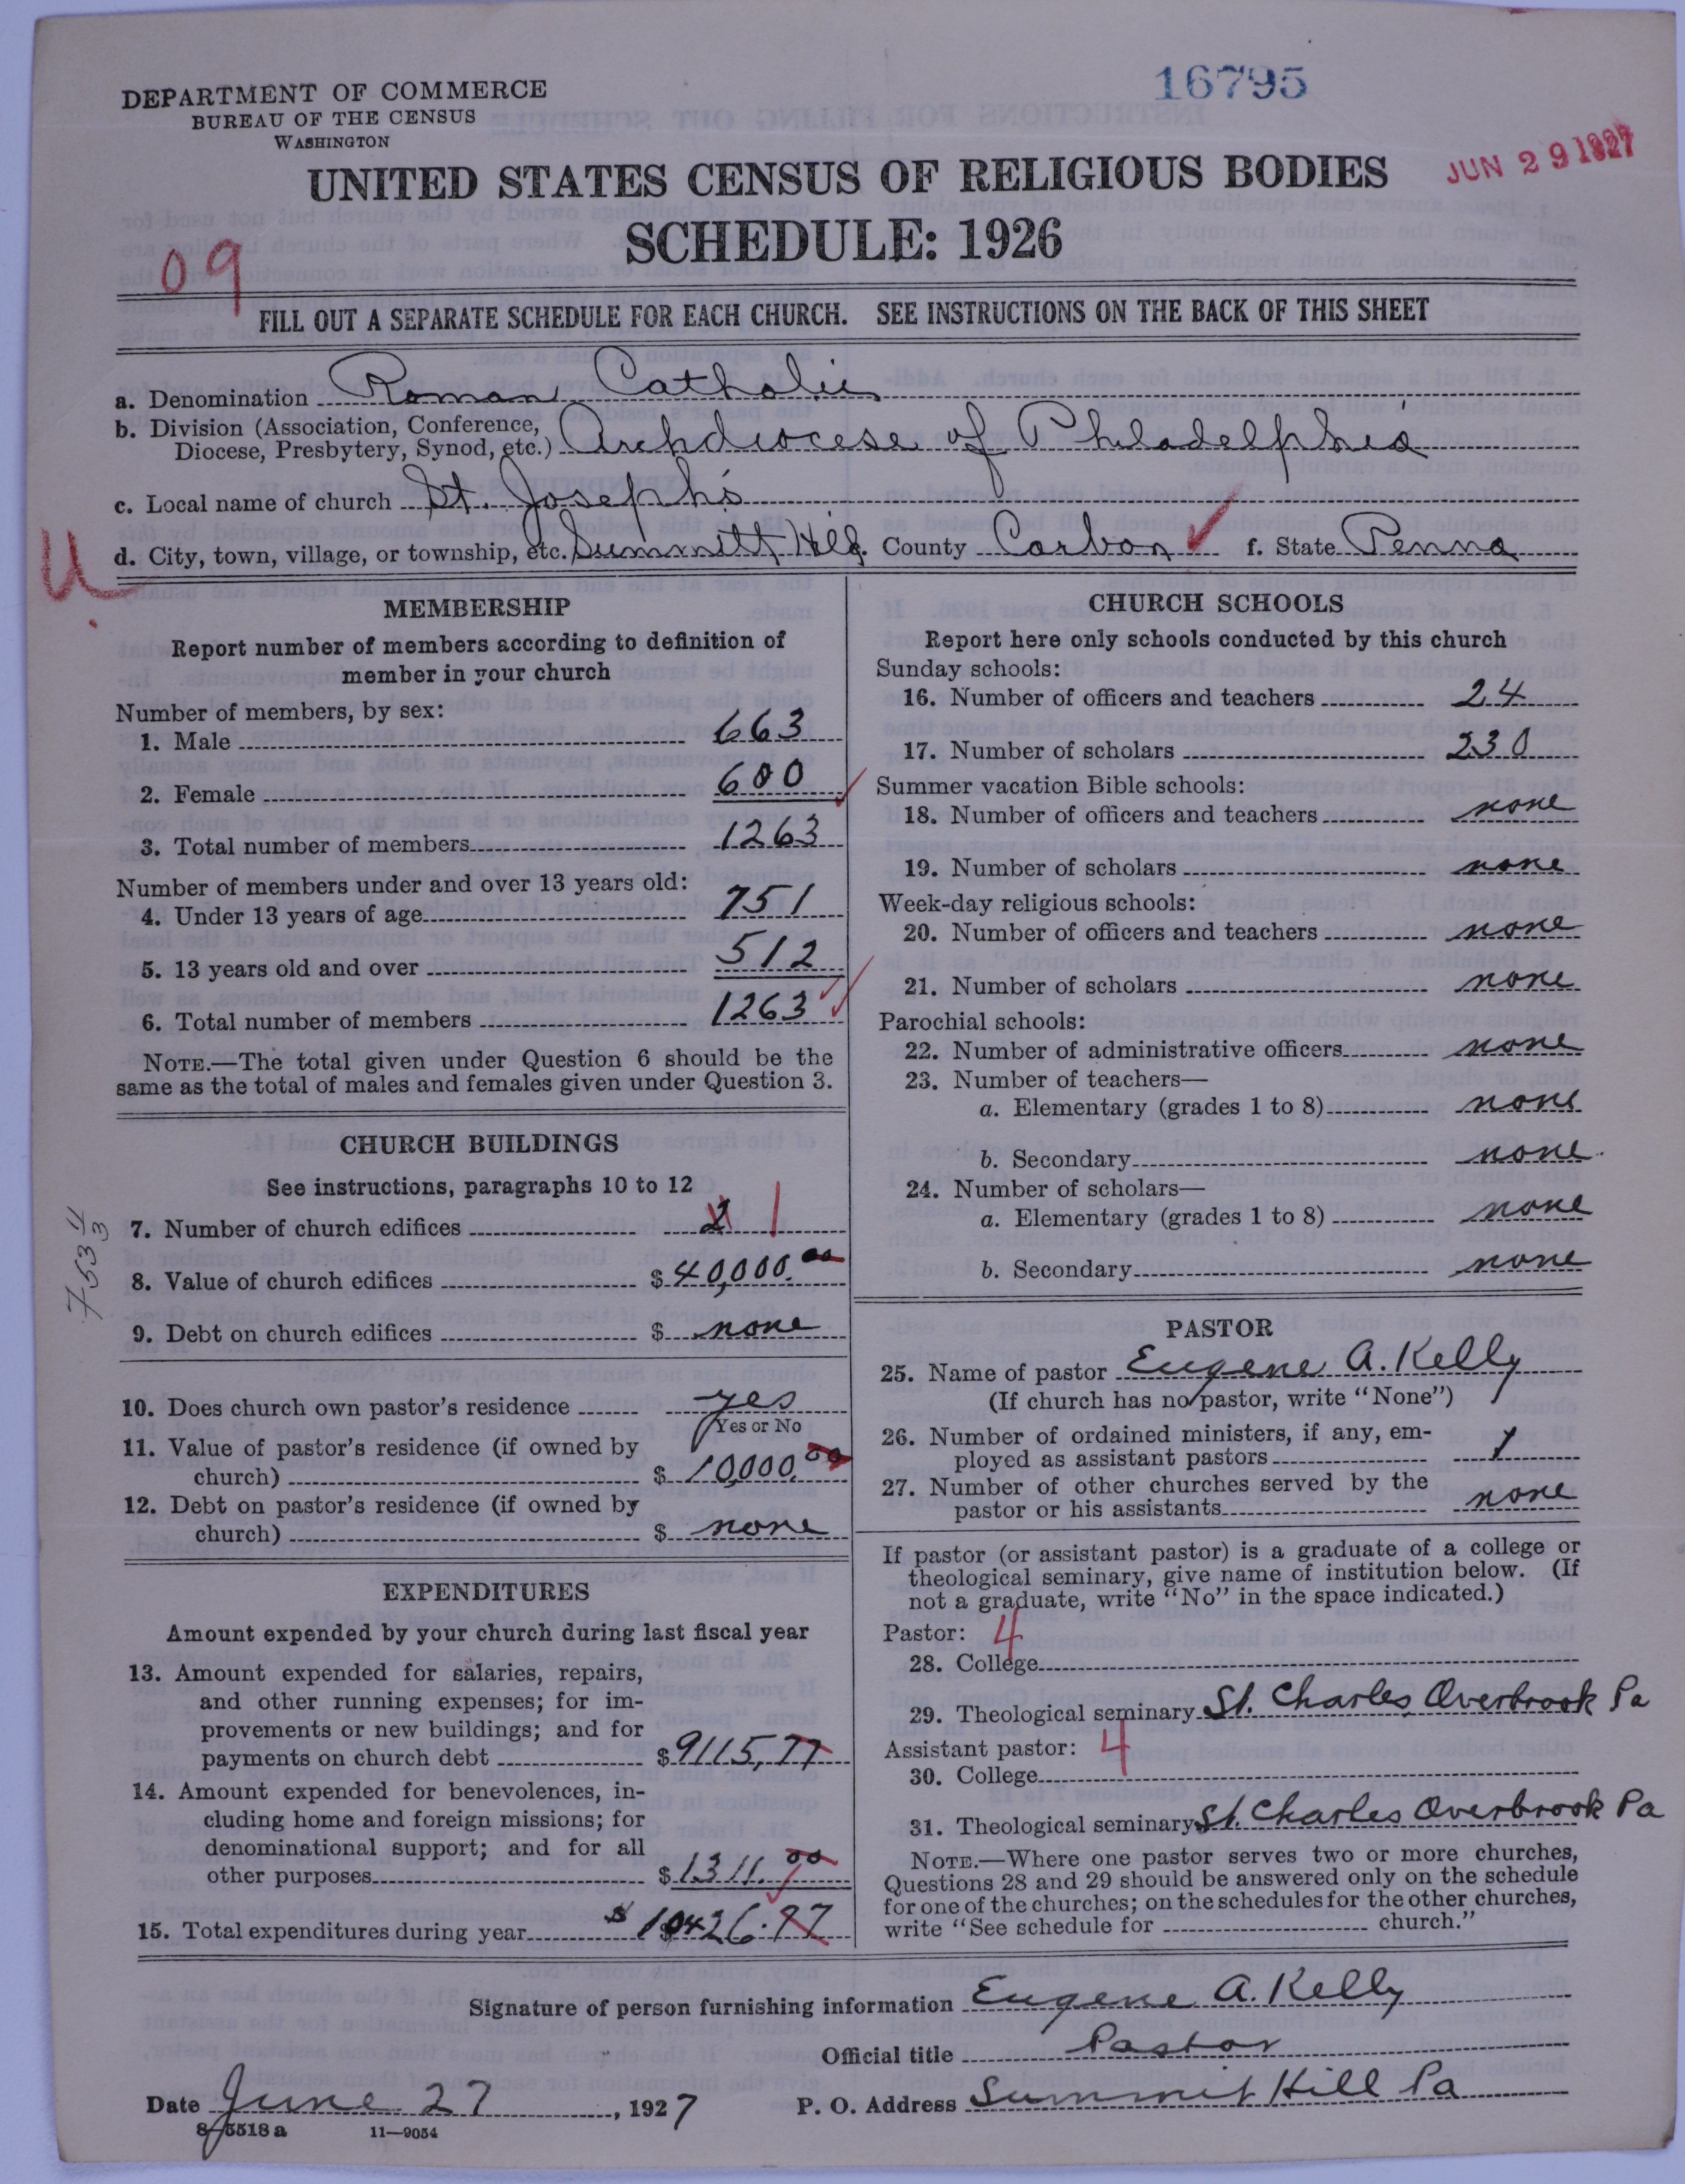 16795
DEPARTMENT OF COMMERCE
BUREAU OF THE CENSUS
WASHINGTON
JUN 29 1927
UNITED STATES CENSUS OF RELIGIOUS BODIES
SCHEDULE: 1926
09
FILL OUT A SEPARATE SCHEDULE FOR EACH CHURCH. SEE INSTRUCTIONS ON THE BACK OF THIS SHEET
a. Denomination Roman Catholic
b. Division (Association, Conference,
Diocese, Presbytery, Synod, etc.) Archdiocese of Philadelphia
c. Local name of church St. Joseph's
d. City, town, village, or township, etc. Summitt Hill e. County Carbon f. State Penna
U.
MEMBERSHIP
Report number of members according to definition of
member in your church
Number of members, by sex:
1. Male 663
2. Female 600
3. Total number of members 1263
Number of members under and over 13 years old:
4. Under 13 years of age 751
5. 13 years old and over 512
6. Total number of members 1263
NOTE.—The total given under Question 6 should be the
same as the total of males and females given under Question 3.
CHURCH BUILDINGS
See instructions, paragraphs 10 to 12
7. Number of church edifices 2 1
8. Value of church edifices $ 40,000.00
9. Debt on church edifices $ none
10. Does church own pastor's residence yes
Yes or No
11. Value of pastor's residence (if owned by
church) $ 10,000.00
12. Debt on pastor's residence (if owned by
church) $ none
EXPENDITURES
Amount expended by your church during last fiscal year
13. Amount expended for salaries, repairs,
and other running expenses; for im-
provements or new buildings; and for
payments on church debt $ 9115,77
14. Amount expended for benevolences, in-
cluding home and foreign missions; for
denominational support; and for all
other purposes $ 1311.00
15. Total expenditures during year $ 10426.77
CHURCH SCHOOLS
Report here only schools conducted by this church
Sunday schools:
16. Number of officers and teachers 24
17. Number of scholars 230
Summer vacation Bible schools:
18. Number of officers and teachers none
19. Number of scholars none
Week-day religious schools:
20. Number of officers and teachers none
21. Number of scholars none
Parochial schools:
22. Number of administrative officers none
23. Number of teachers—
a. Elementary (grades 1 to 8) none
b. Secondary none
24. Number of scholars—
a. Elementary (grades 1 to 8) none
b. Secondary none
PASTOR
25. Name of pastor Eugene A. Kelly
(If church has no pastor, write "None")
26. Number of ordained ministers, if any, em-
ployed as assistant pastors 1
27. Number of other churches served by the
pastor or his assistants none
If pastor (or assistant pastor) is a graduate of a college or
theological seminary, give name of institution below. (If
not a graduate, write "No" in the space indicated.)
Pastor: 4
28. College
29. Theological seminary St. Charles Overbrook Pa
Assistant pastor: 4
30. College
31. Theological seminary St. Charles Overbrook Pa
NOTE.—Where one pastor serves two or more churches,
Questions 28 and 29 should be answered only on the schedule
for one of the churches; on the schedules for the other churches,
write "See schedule for church."
Signature of person furnishing information Eugene A. Kelly
Official title Pastor
Date June 27, 1927 P. O. Address Summit Hill Pa
8-5518 a 11—9054